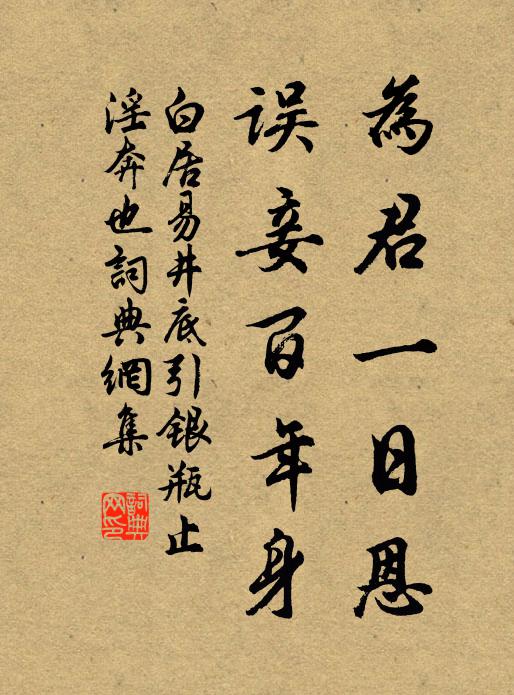 為君一日恩
误妾百年身
白居易井底引銀瓶止
淫奔也詞典網集
詞典
网印